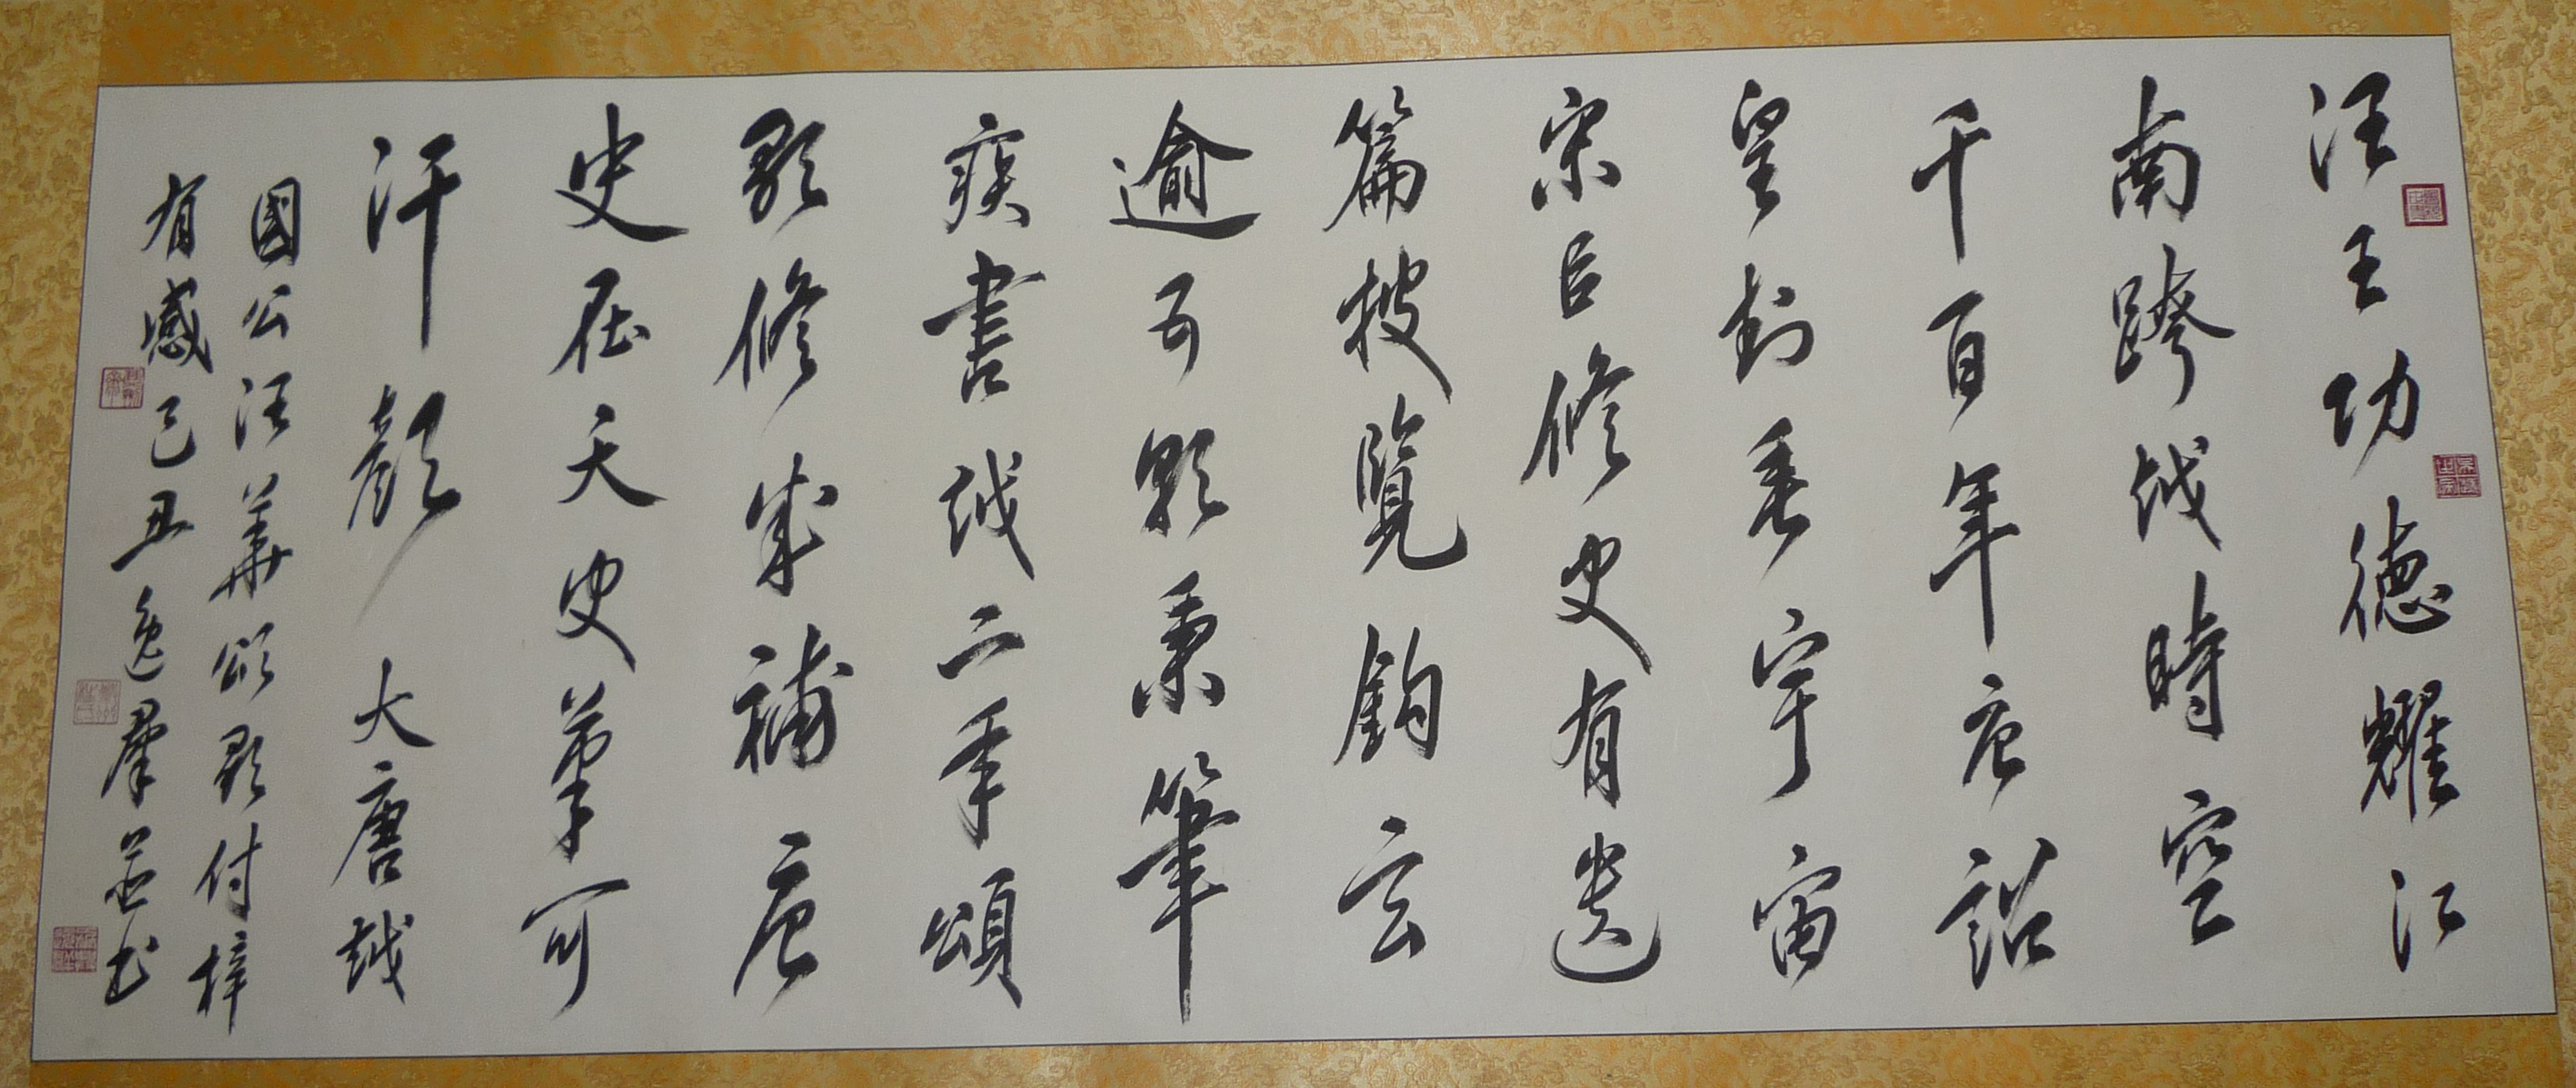 汪王功德耀江
南跨越時空
千百年唐詔
皇封垂宇宙
宋臣修史有遺
篇披覽鈎玄
逾五秉筆
疾書越二年頌
歌修成補唐
史在天史可
汗顏 大唐越
國公汪華頌歌付梓
有感己丑逸群並書